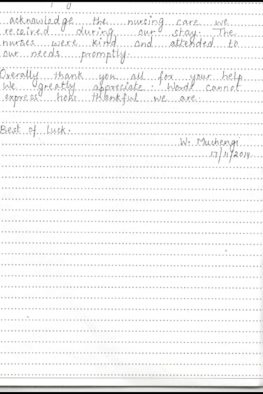 acknowledge the nursing care we
received during our stay. The
nurses were kind and attended to
our needs promptly.
Overally thank you all for your help
We greatly appreciate. Words cannot
express how thankful we are.
Best of luck.
W. Muchengi